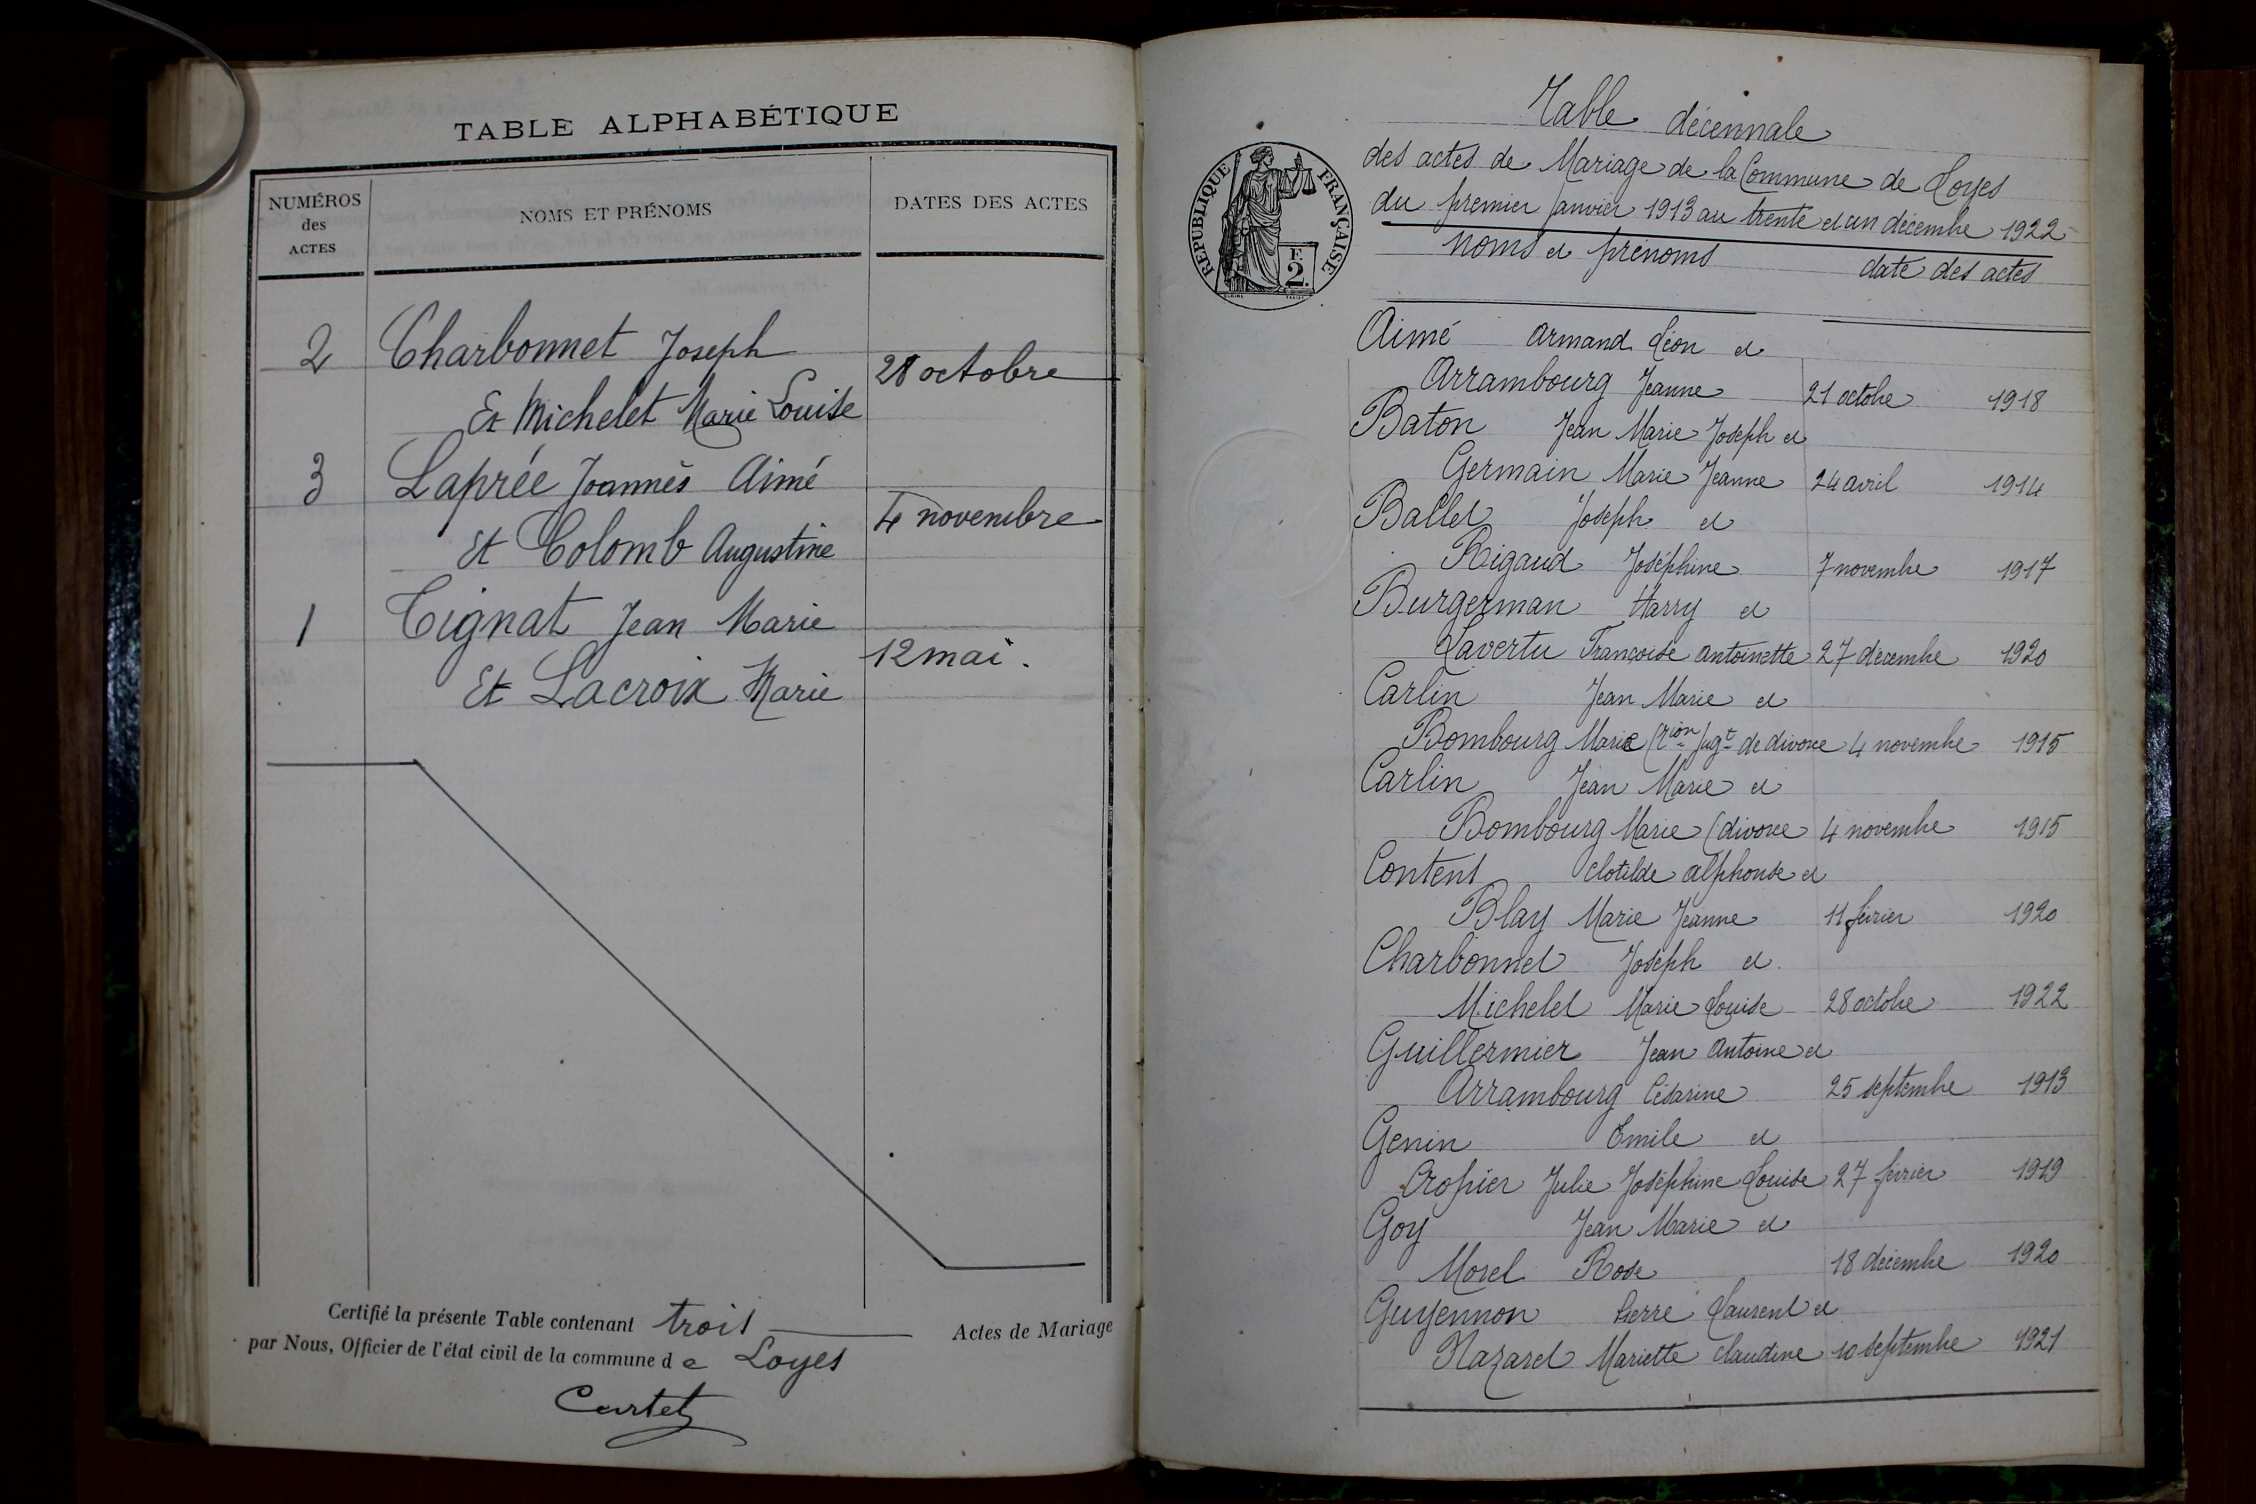 TABLE ALPHABÉTIQUE
NUMÉROS
des
ACTES
NOMS ET PRÉNOMS
DATES DES ACTES
2 Charbonnet Joseph
28 octobre
Et Michelet Marie Louise
3 Laprée Joannès Aimé
4 novembre
et Colomb Augustine
1 Tignat Jean Marie
12 mai.
Et Lacroix Marie
Certifié la présente Table contenant trois Actes de Mariage
par Nous, Officier de l'état civil de la commune de Loyes
Curtet
RÉPUBLIQUE FRANÇAISE
F.
2.
Table décennale
des actes de Mariage de la Commune de Loyes
du premier janvier 1913 au trente et un décembre 1922
noms et prénoms date des actes
Aimé Armand Léon et
Arrambourg Jeanne 21 octobre 1918
Baton Jean Marie Joseph et
Germain Marie Jeanne 24 avril 1914
Ballet Joseph et
Rigaud Joséphine 7 novembre 1917
Burgerman Harry et
Lavertu Françoise Antoinette 27 décembre 1920
Carlin Jean Marie et
Bombourg Marie (Tion Jugt de divorce 4 novembre 1915
Carlin Jean Marie et
Bombourg Marie (divorce 4 novembre 1915
Content Clotilde Alphonse et
Blay Marie Jeanne 11 février 1920
Charbonnet Joseph et
Michelet Marie Louise 28 octobre 1922
Guillermier Jean Antoine et
Arrambourg Césarine 25 septembre 1913
Genin Emile et
Cropier Julie Joséphine Louise 27 février 1919
Goy Jean Marie et
Morel Rose 18 décembre 1920
Guyennon Pierre Laurent et
Nazaret Mariette Claudine 10 septembre 1921